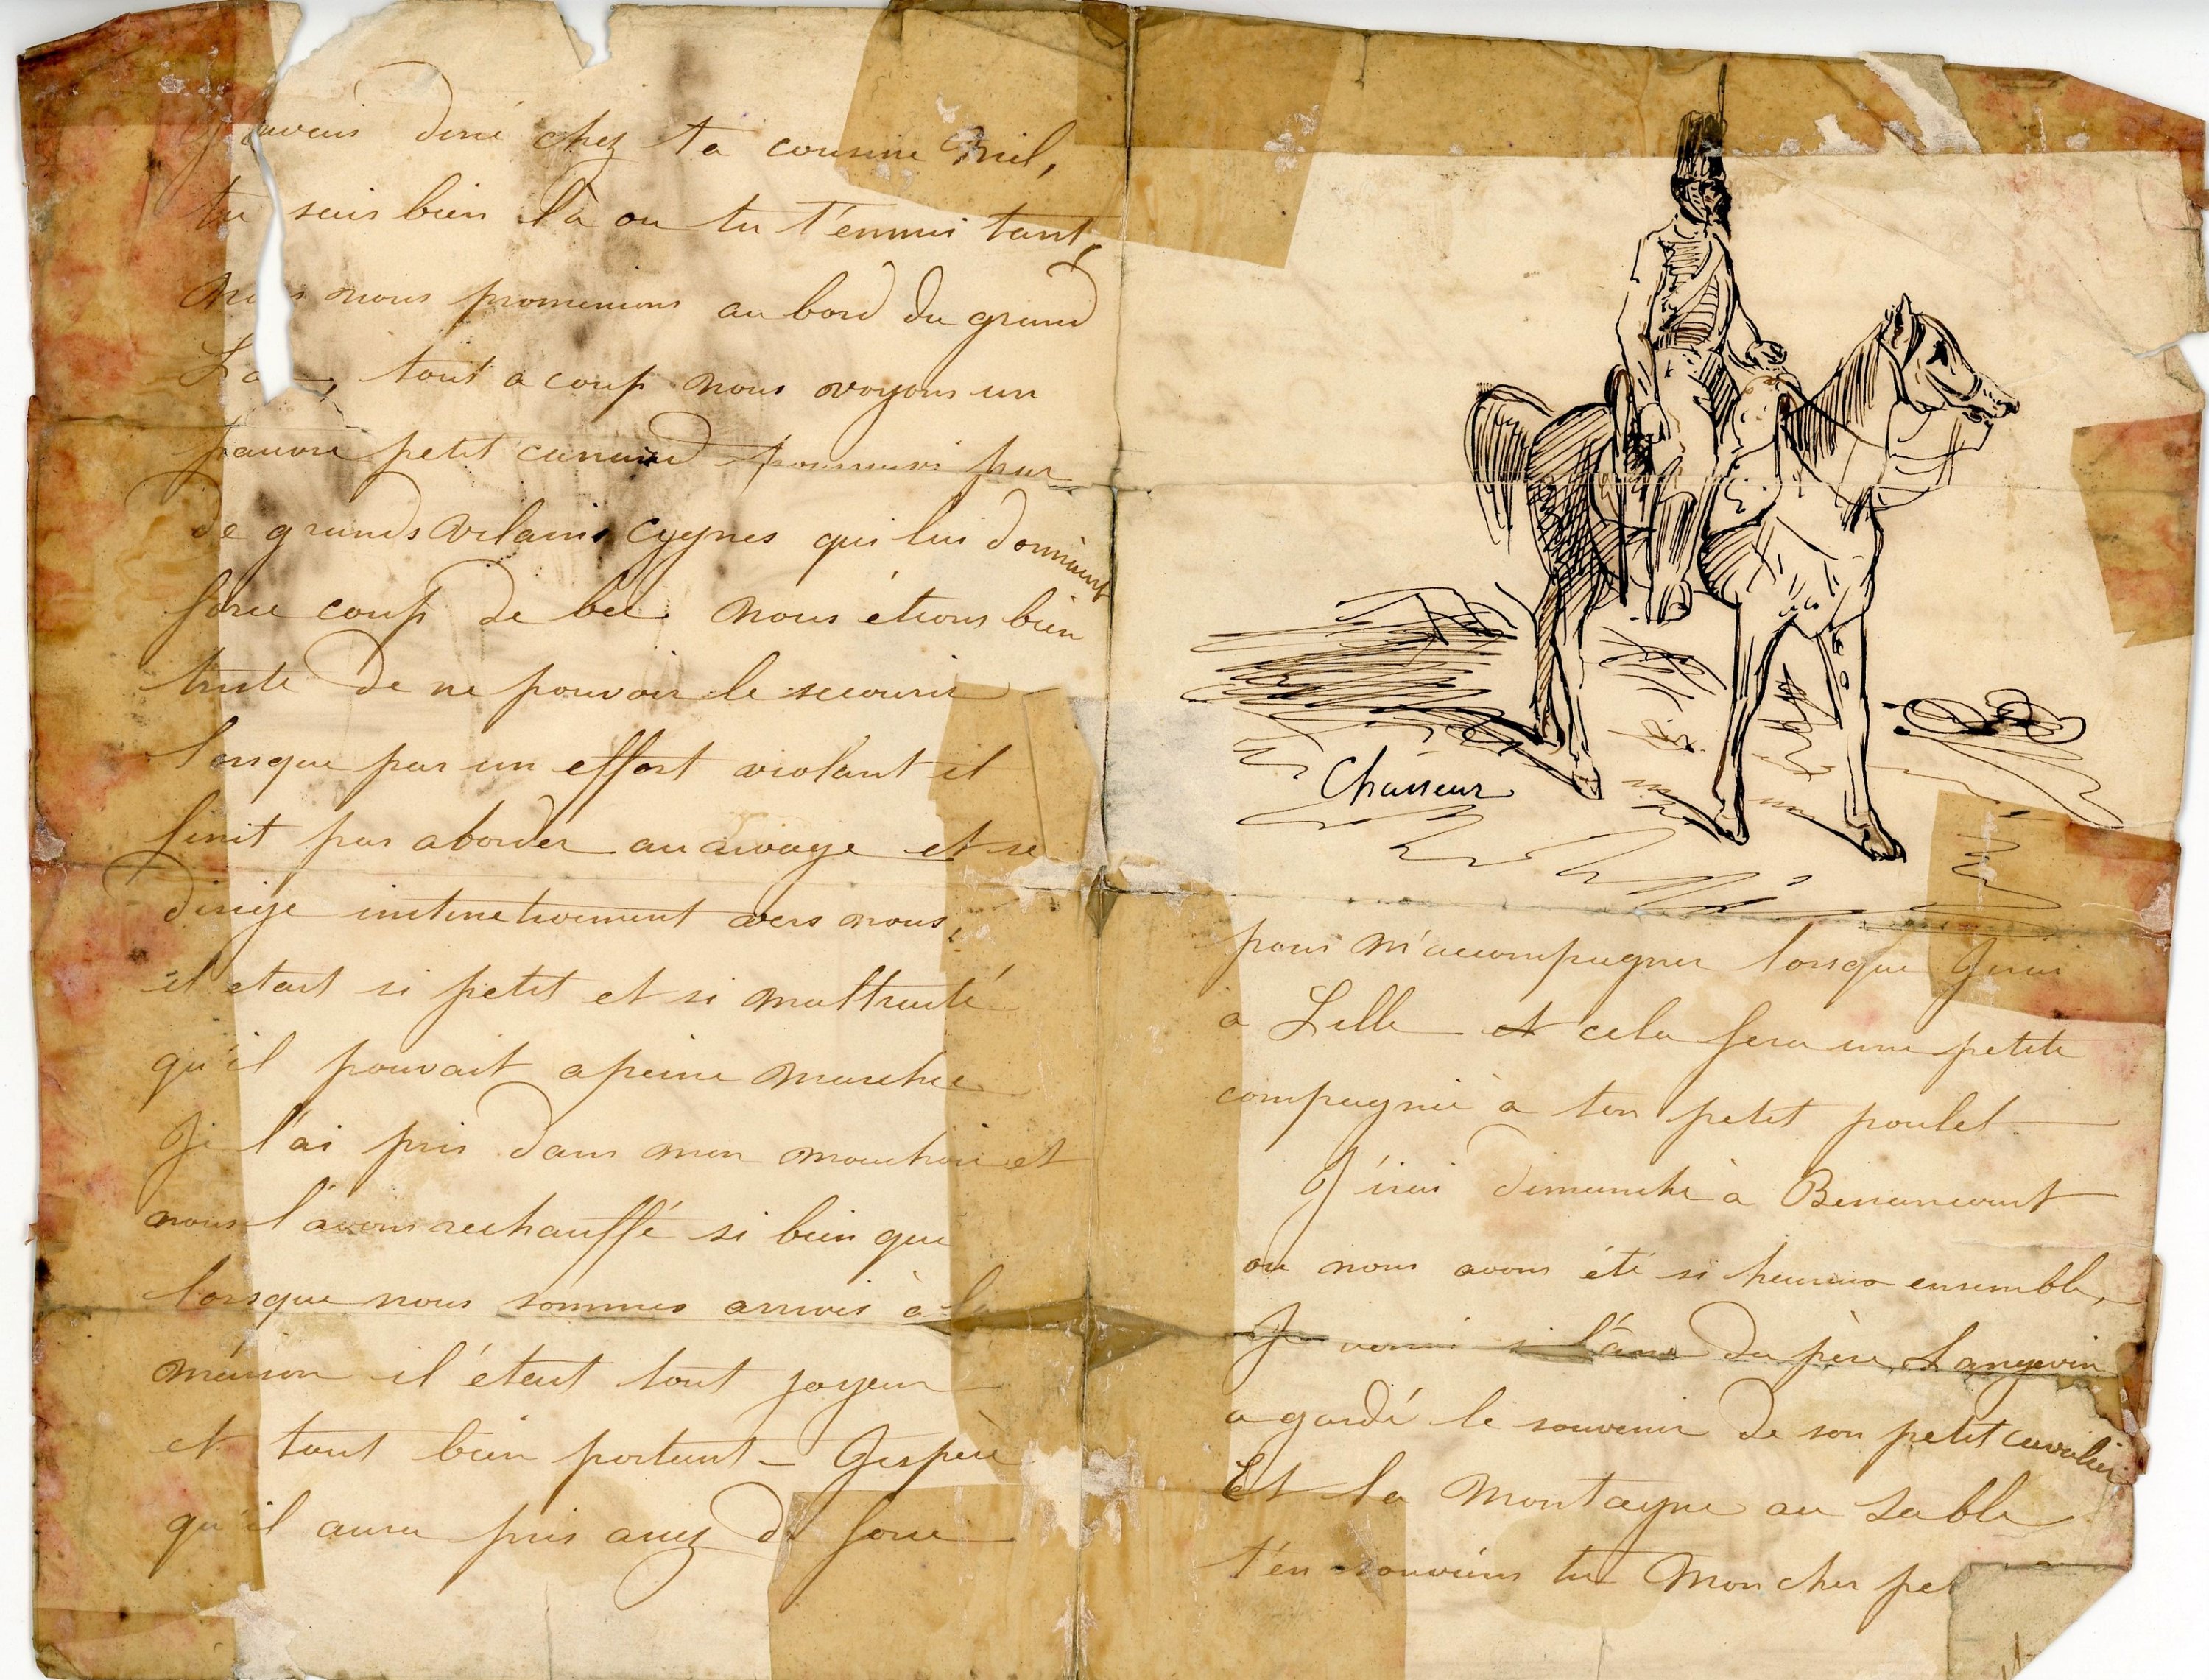 J'avais diné chez ta cousine Niel,
tu sais bien là ou tu t'ennui tant,
nous nous promenions au bord du grand
Lac, tout a coup nous voyons un
pauvre petit canard poursuivi par
de grands vilains cygnes qui lui donnaient
force coup de bec nous étions bien
triste de ne pouvoir le secourir
lorsque par un effort violant il
finit par aborder au rivage et se
dirige instinctivement vers nous,
il etait si petit et si maltraité
qu'il pouvait apeine marcher
Je l'ai pris dans mon mouchoir et
nous l'avons rechauffé si bien que
lorsque nous sommes arrivés à la
maison il était tout joyeux
et tout bien portant – J'espère
qu'il aura pris assez de force
Chasseur
pour m'accompagner lorsque j'irai
a Lille et cela fera une petite
compagnie à ton petit poulet
J'irai dimanche à
ou nous avons été si heureux ensemble,
Je verrai si l'âne du père Langevin
a gardé le souvenir de son petit cavalier
Et la montagne au sable
t'en souviens tu mon cher